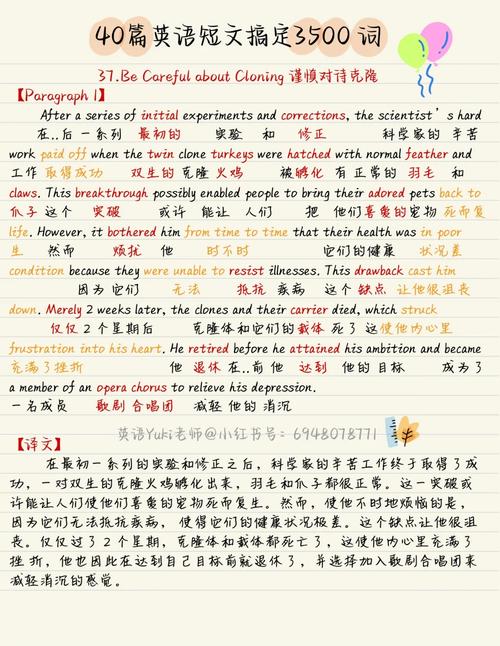 40篇英语短文搞定3500词
37.Be Careful about Cloning 谨慎对待克隆
【Paragraph 1】
After a series of initial experiments and corrections, the scientist's hard
在..后 一系列 最初的 实验 和 修正 科学家的 辛苦
work paid off when the twin clone turkeys were hatched with normal feather and
工作 取得成功 双生的 克隆 火鸡 被孵化 有 正常的 羽毛 和
claws. This breakthrough possibly enabled people to bring their adored pets back to
爪子 这个 突破 或许 能让 人们 把 他们喜爱的宠物 死而复
life. However, it bothered him from time to time that their health was in poor
生 然而 烦扰 他 时不时 它们的健康 状况差
condition because they were unable to resist illnesses. This drawback cast him
因为 它们 无法 抵抗 疾病 这个 缺点 让他很沮
down. Merely 2 weeks later, the clones and their carrier died, which struck
丧 仅仅 2 个星期后 克隆体和它们的载体 死了 这使他内心里
frustration into his heart. He retired before he attained his ambition and became
充满了挫折 他 退休 在..前 他 达到 他的 目标 成为了
a member of an opera chorus to relieve his depression.
一名成员 歌剧 合唱团 减轻 他的 消沉
英语Yuki老师@小红书号：6948078771
【译文】
在最初一系列的实验和修正之后，科学家的辛苦工作终于取得了成
功，一对双生的克隆火鸡孵化出来，羽毛和爪子都很正常。这一突破或
许能让人们使他们喜爱的宠物死而复生。然而，使他不时地烦恼的是，
因为它们无法抵抗疾病，使得它们的健康状况极差。这个缺点让他很沮
丧。仅仅过了2个星期，克隆体和载体都死亡了，这使他内心里充满了
挫折，他也因此在达到自己目标前就退休了，并选择加入歌剧合唱团来
减轻消沉的感觉。